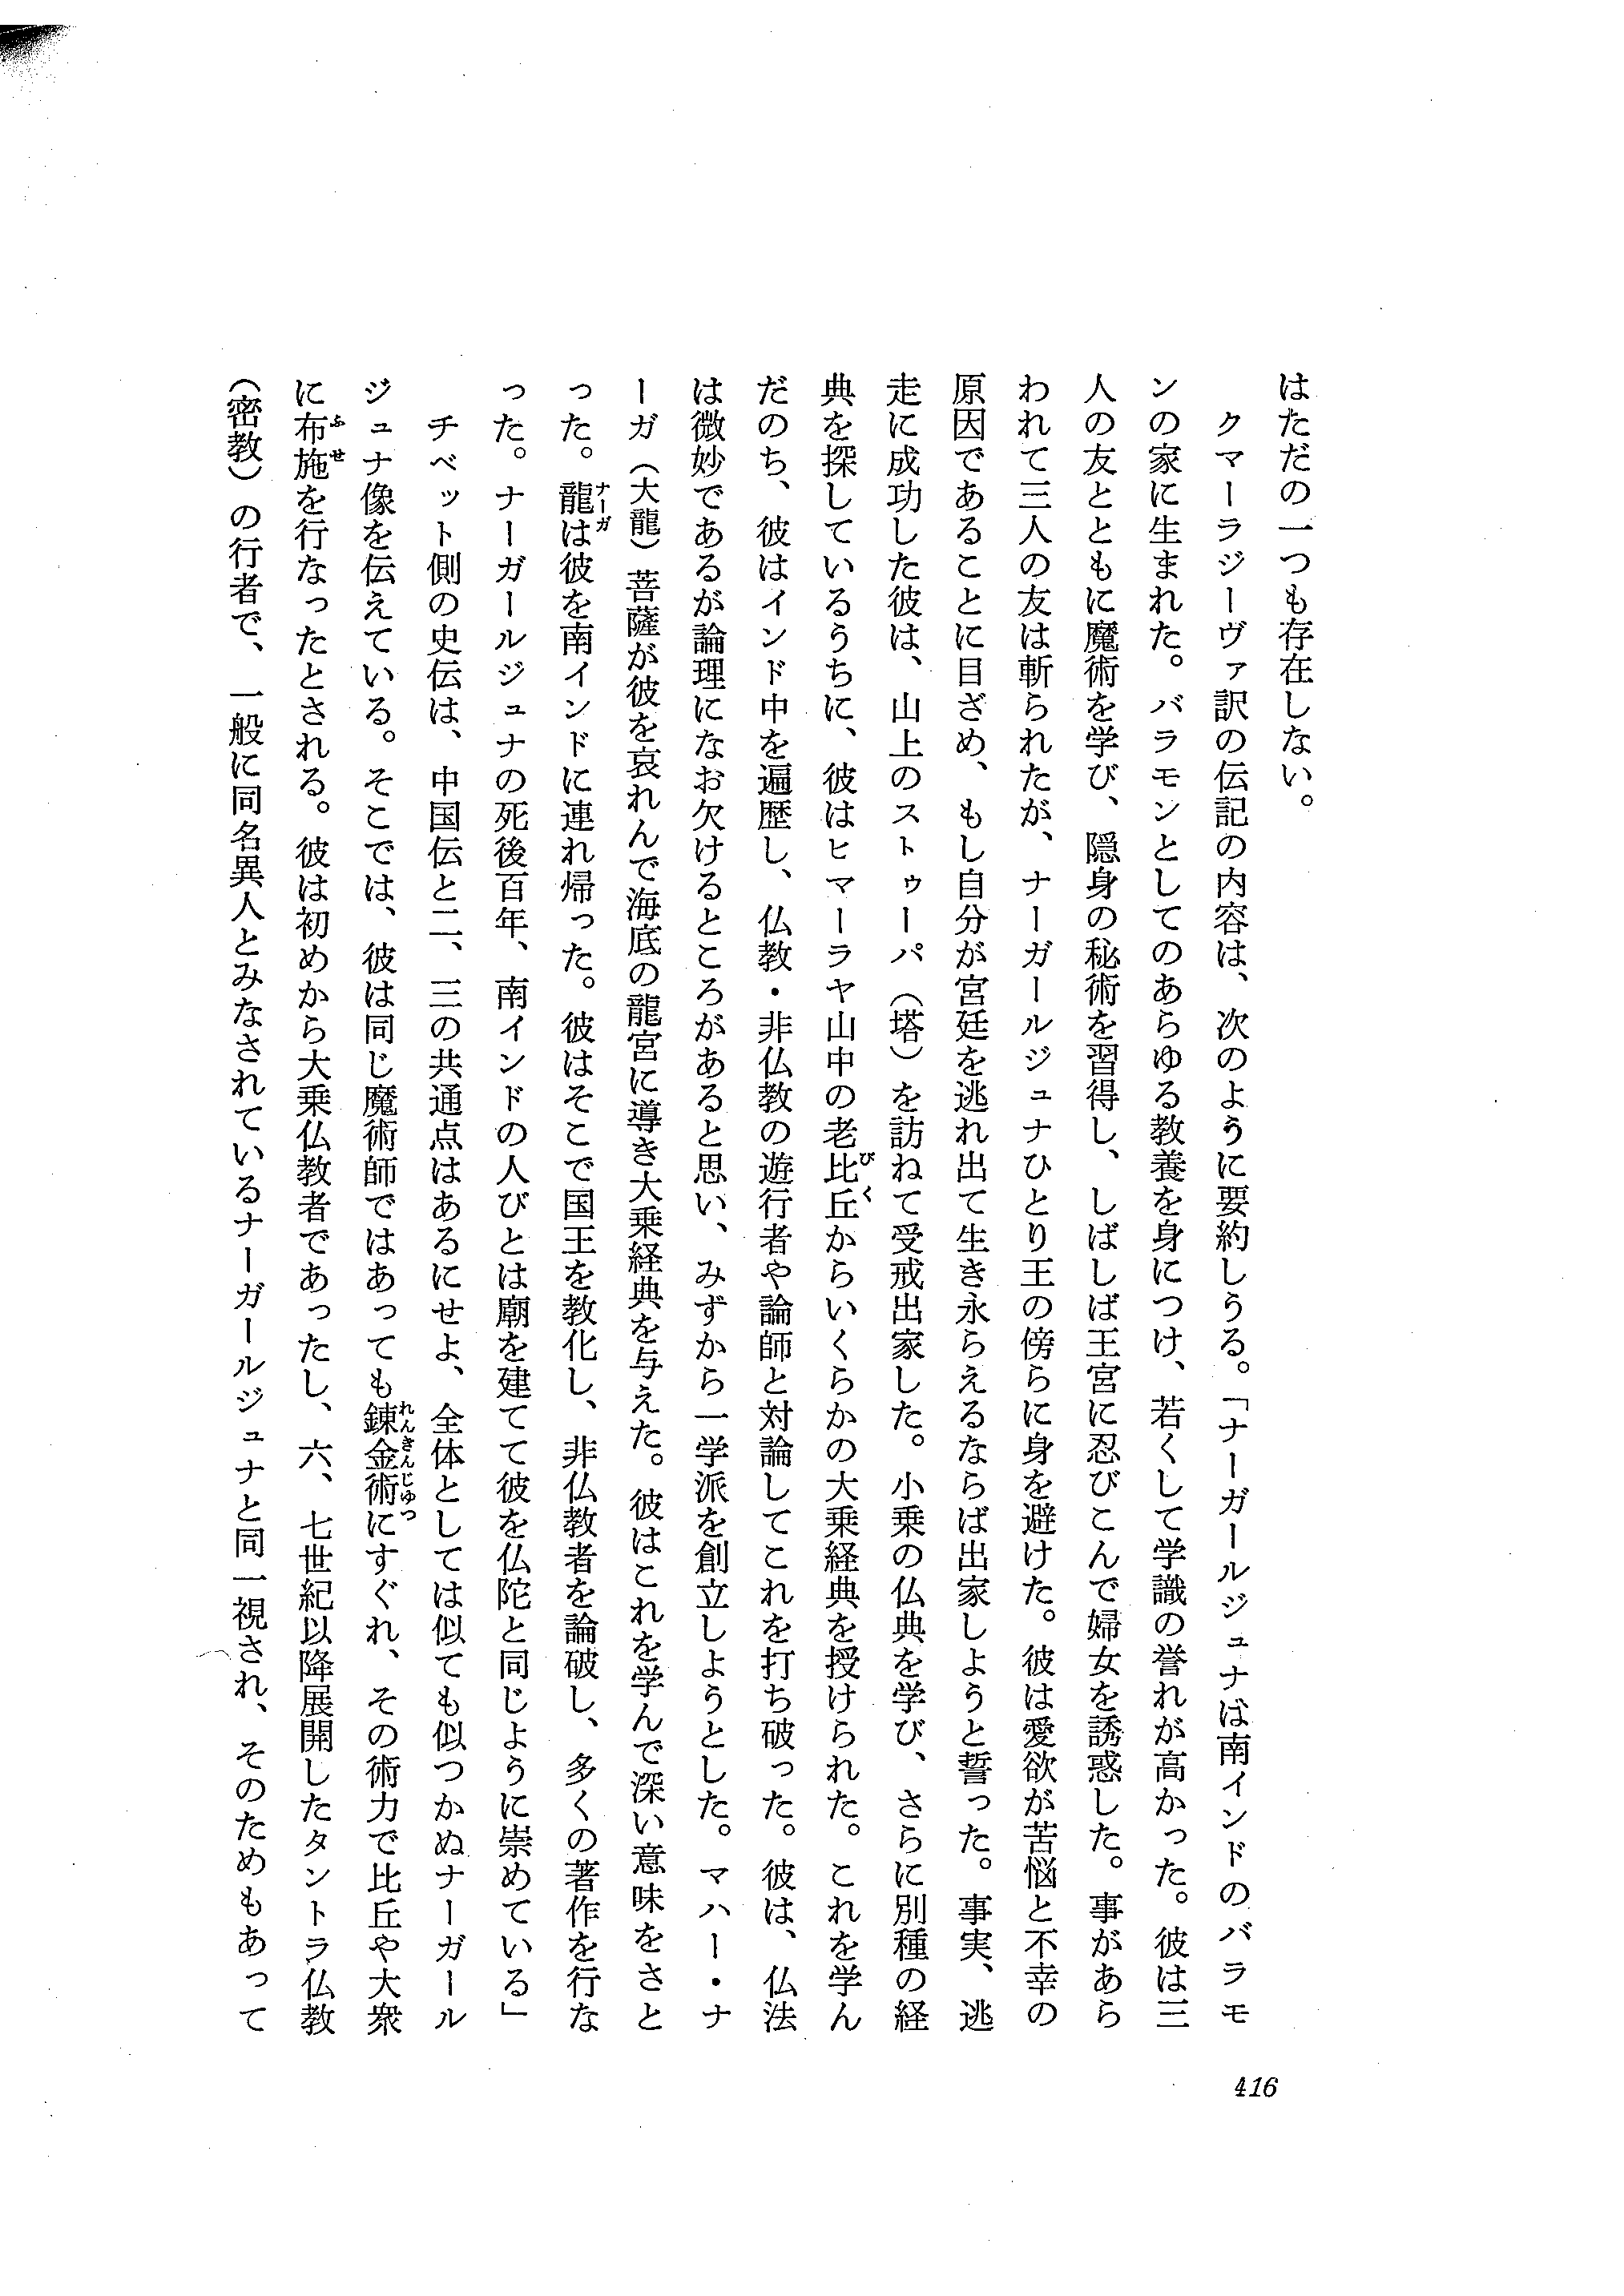 はただの一つも存在しない。
クマーラジーヴァ訳の伝記の内容は、次のように要約しうる。「ナーガールジュナは南インドのバラモ
ンの家に生まれた。バラモンとしてのあらゆる教養を身につけ、若くして学識の誉れが高かった。彼は三
人の友とともに魔術を学び、隠身の秘術を習得し、しばしば王宮に忍びこんで婦女を誘惑した。事があら
われて三人の友は斬られたが、ナーガールジュナひとり王の傍らに身を避けた。彼は愛欲が苦悩と不幸の
原因であることに目ざめ、もし自分が宮廷を逃れ出て生き永らえるならば出家しようと誓った。事実、逃
走に成功した彼は、山上のストゥーパ（塔）を訪ねて受戒出家した。小乗の仏典を学び、さらに別種の経
典を探しているうちに、彼はヒマーラヤ山中の老比丘からいくらかの大乗経典を授けられた。これを学ん
だのち、彼はインド中を遍歴し、仏教・非仏教の遊行者や論師と対論してこれを打ち破った。彼は、仏法
は微妙であるが論理になお欠けるところがあると思い、みずから一学派を創立しようとした。マハー・ナ
ーガ（大龍）菩薩が彼を哀れんで海底の龍宮に導き大乗経典を与えた。彼はこれを学んで深い意味をさと
った。龍は彼を南インドに連れ帰った。彼はそこで国王を教化し、非仏教者を論破し、多くの著作を行な
った。ナーガールジュナの死後百年、南インドの人びとは廟を建てて彼を仏陀と同じように崇めている」
チベット側の史伝は、中国伝と二、三の共通点はあるにせよ、全体としては似ても似つかぬナーガール
ジュナ像を伝えている。そこでは、彼は同じ魔術師ではあっても錬金術にすぐれ、その術力で比丘や大衆
に布施を行なったとされる。彼は初めから大乗仏教者であったし、六、七世紀以降展開したタントラ仏教
（密教）の行者で、一般に同名異人とみなされているナーガールジュナと同一視され、そのためもあって
416